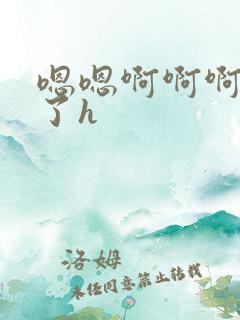 嗯嗯啊啊啊
了h
洛姆
未经同意禁止转载